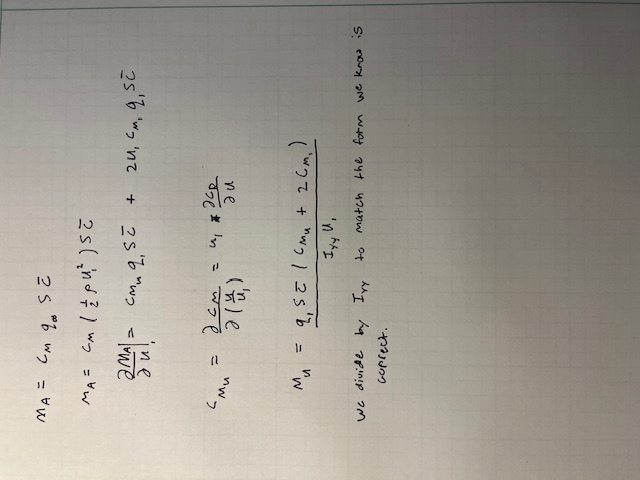 M_A = C_M q_∞ S c̄
M_A = C_M ( ½ ρ U₁² ) S c̄
∂M_A/∂u |₁ = C_{M_u} q₁ S c̄ + 2U₁ C_{M₁} q₁ S c̄
C_{M_u} = ∂C_M / ∂(u/U₁) = U₁ * ∂C_D/∂u
M_u = q₁ S c̄ ( C_{M_u} + 2 C_{M₁} ) / I_{yy} U₁
We divide by I_{yy} to match the form we know is
correct.